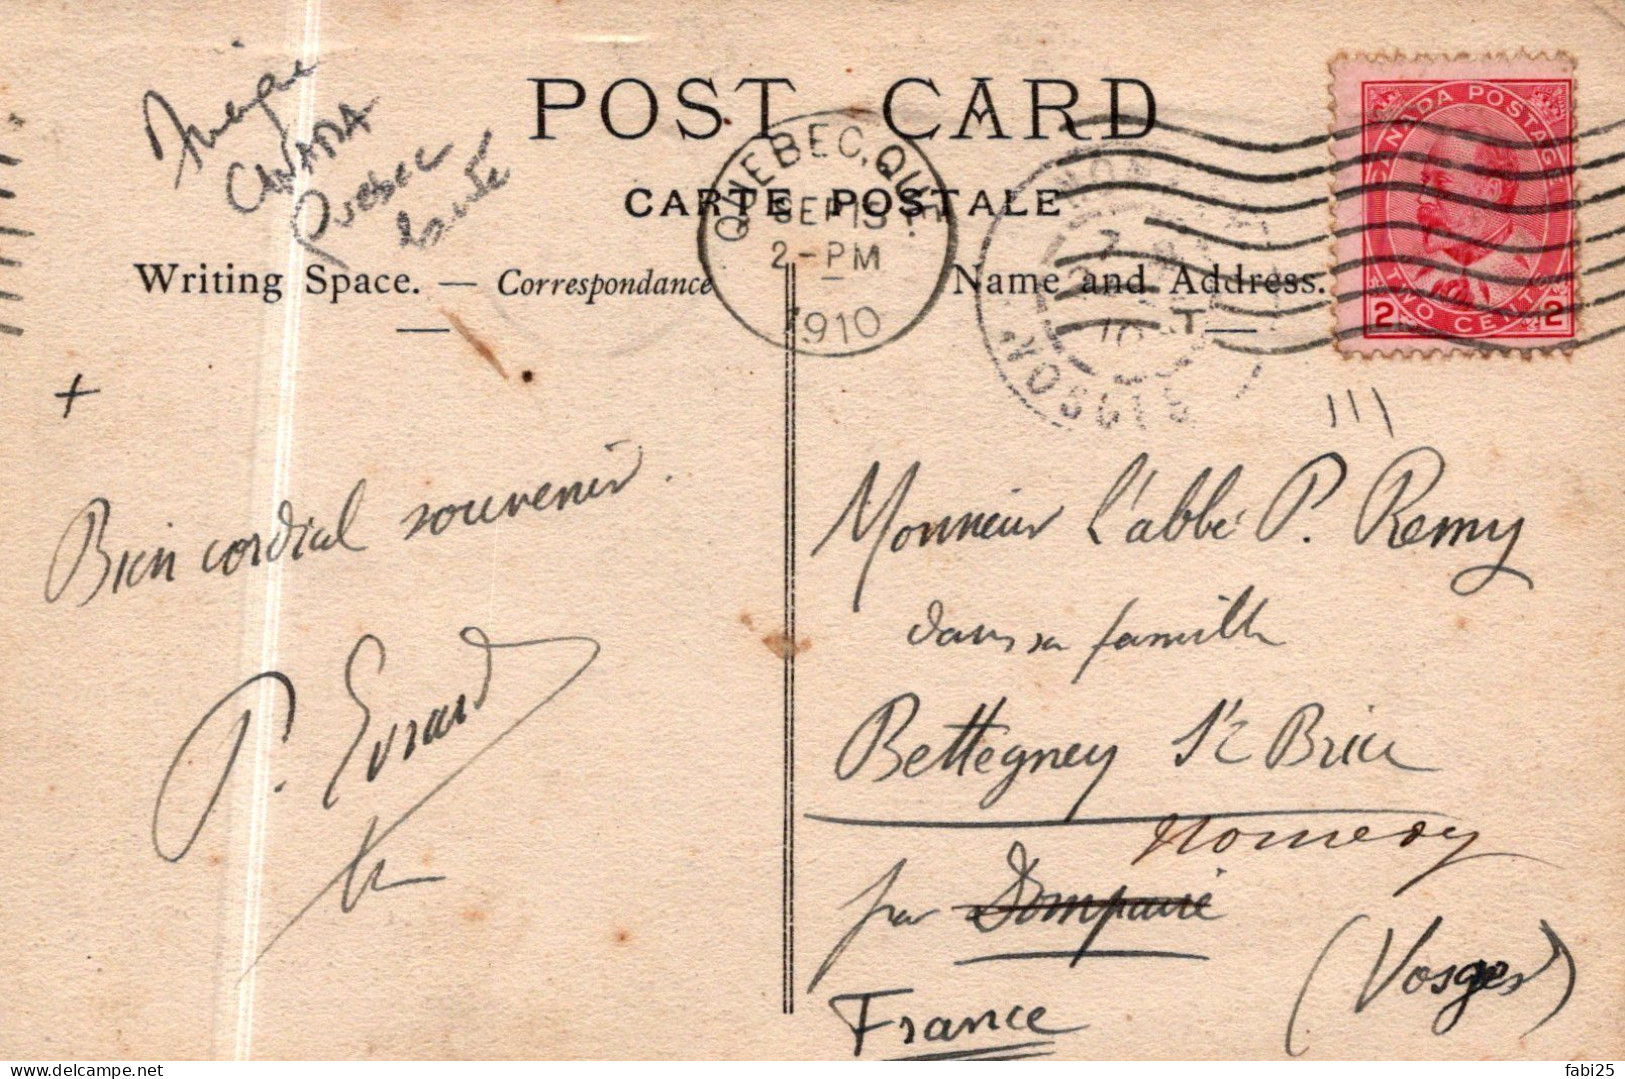 CANADA
Quebec
POST CARD
CARTE POSTALE
Writing Space. — Correspondance
Name and Address.
QUEBEC, QUE.
SEP 15
2-PM
1910
NOMEXY
VOSGES
CANADA POSTAGE
2 TWO CENTS 2
T
+
Bien cordial souvenir.
P. Evrard
Monsieur l'abbé P. Remy
dans sa famille
Bettegney St Brice
Nomexy
par Dompaire
(Vosges)
France
fabi25